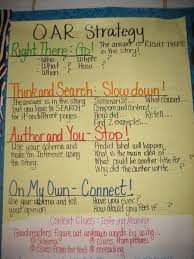 QAR Strategy
Right There - Go!
The answer is RIGHT THERE
in the story!
Who? When? How?
What? Where?
Think and Search - Slow down!
The answer is in the story
but you have to SEARCH
for it on different pages
Summarize What caused
Compare and Contrast
How do/did
Find 2 examples...
Author and You - Stop!
Use your schema and
make an inference using
the story
Predict what will happen
What is the main idea
What could be another title for
Why did the author write
On My Own - Connect!
Use your schema and tell
your opinion
Have you ever
How would you feel if
Context Clues: Inferring Meaning
Good readers figure out unknown words by using...
schema clues from pictures